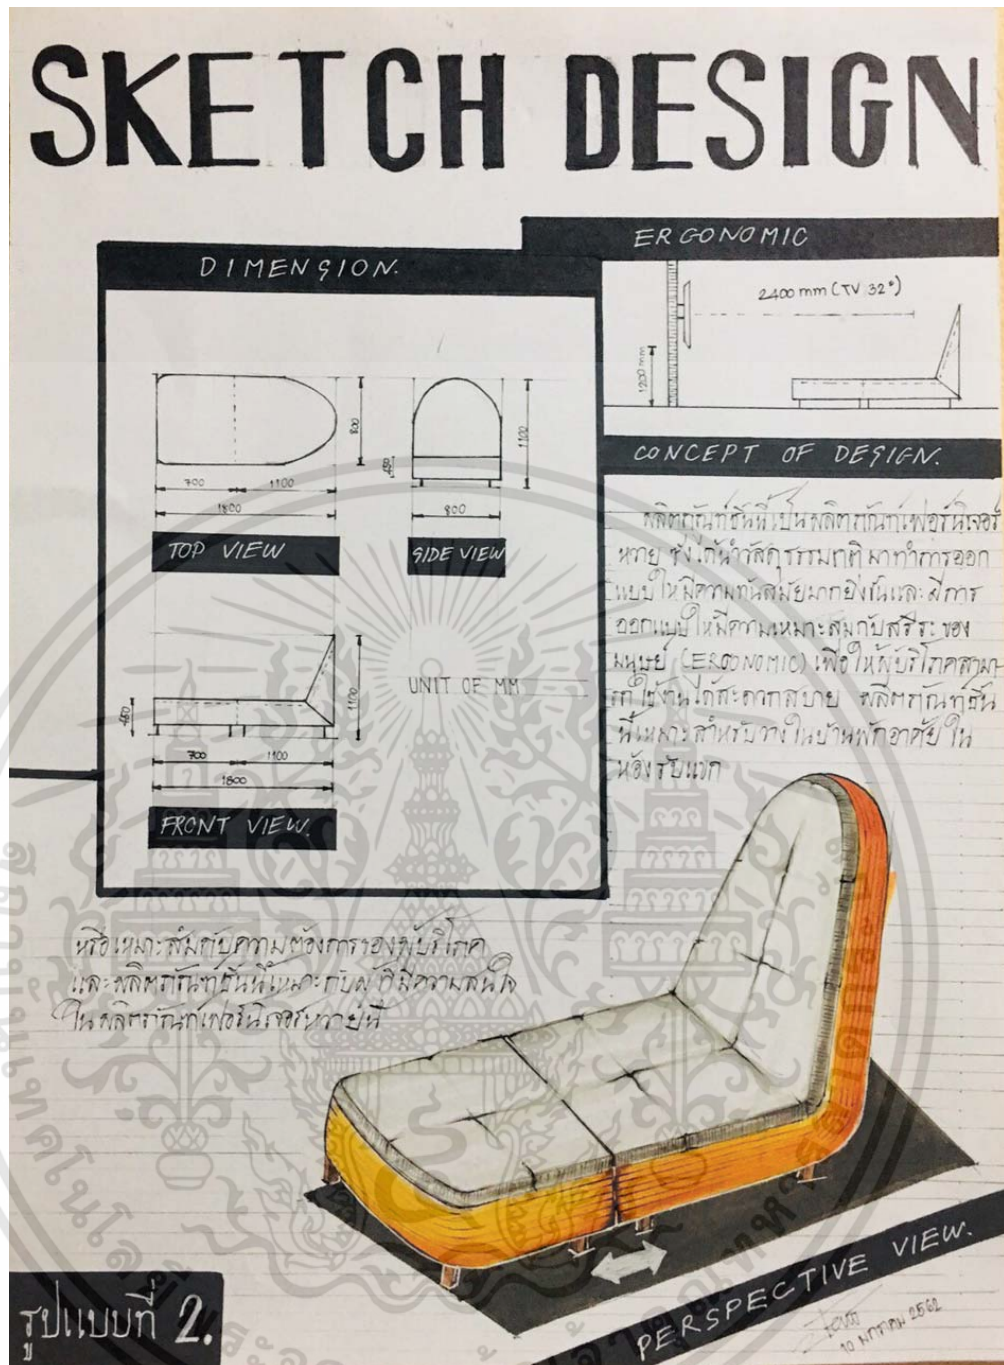 SKETCH DESIGN
DIMENSION.
700
1100
1800
800
TOP VIEW
450
1100
800
SIDE VIEW
450
700
1100
1800
1100
FRONT VIEW.
UNIT OF MM
ERGONOMIC
2400 mm (TV 32")
1200 mm
CONCEPT OF DESIGN.
ผลิตภัณฑ์ชิ้นนี้เป็นผลิตภัณฑ์เฟอร์นิเจอร์
หวาย ซึ่งได้นำวัสดุธรรมชาติมาทำการออก
แบบให้มีความทันสมัยมากยิ่งขึ้นและมีการ
ออกแบบให้มีความเหมาะสมกับสรีระของ
มนุษย์ (ERGONOMIC) เพื่อให้ผู้บริโภคสามา-
รถใช้งานได้สะดวกสบาย ผลิตภัณฑ์ชิ้น
นี้เหมาะสำหรับวางในบ้านพักอาศัย ใน
ห้องรับแขก
หรือเหมาะสมกับความต้องการของผู้บริโภค
และผลิตภัณฑ์ชิ้นนี้เหมาะกับผู้ที่มีความสนใจ
ในผลิตภัณฑ์เฟอร์นิเจอร์หวายนี้
PERSPECTIVE VIEW.
10 มกราคม 2562
รูปแบบที่ 2.